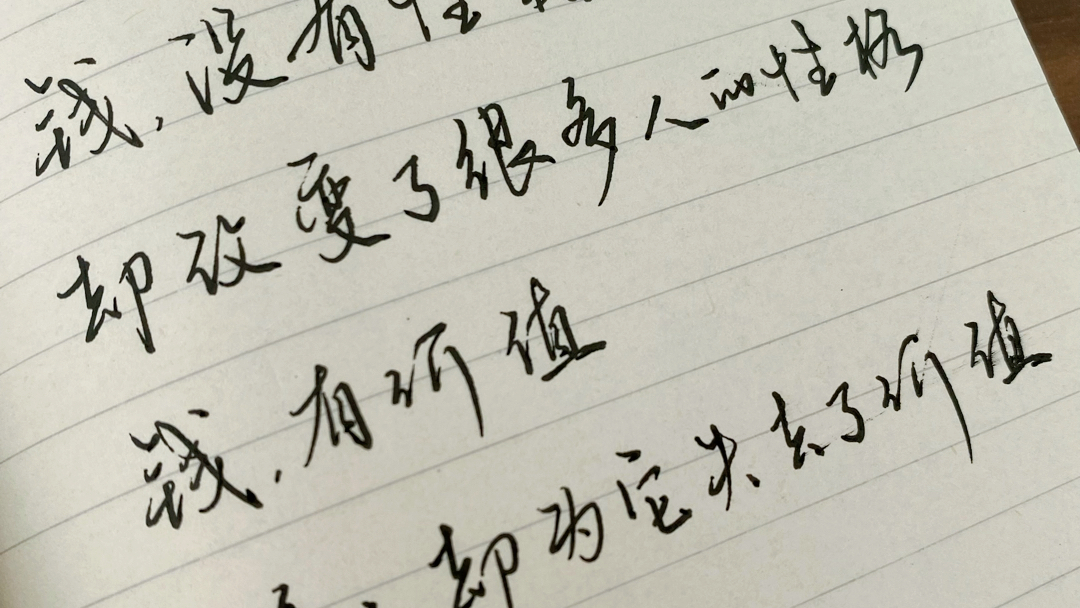 錢,没有性
却改变了很多人的性格
錢,有价值
却为它失去了价值